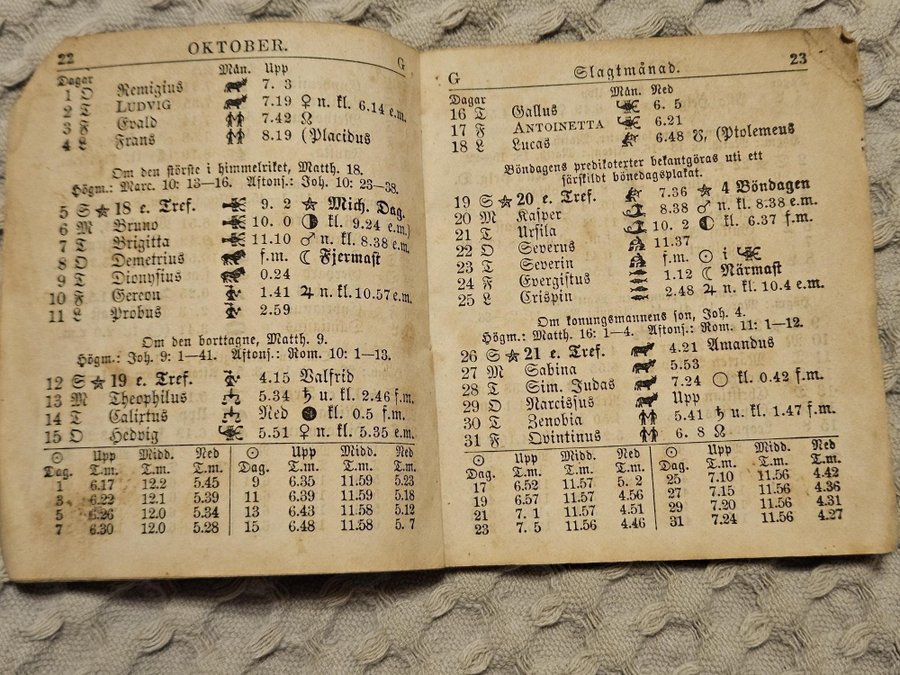 22 OKTOBER. G
Dagar Mån. Upp
1 O Remigius 7. 3
2 T LUDVIG 7.19 ♀ n. kl. 6.14 e.m.
3 F Evald 7.42 ☊
4 L Frans 8.19 (Placidus
Om den störste i himmelriket, Matth. 18.
Högm.: Marc. 10: 13—16. Aftons.: Joh. 10: 23—38.
5 S 18 e. Tref. 9. 2 Mich. Dag.
6 M Bruno 10. 0 ◑ kl. 9.24 e.m.)
7 T Brigitta 11.10 ♂ n. kl. 8.38 e.m.
8 O Demetrius f.m. ☾ Fjermast
9 T Dionysius 0.24
10 F Gereon 1.41 ♃ n. kl. 10.57 e.m.
11 L Probus 2.59
Om den borttagne, Matth. 9.
Högm.: Joh. 9: 1—41. Aftons.: Rom. 10: 1—13.
12 S 19 e. Tref. 4.15 Valfrid
13 M Theophilus 5.34 ♄ u. kl. 2.46 f.m.
14 T Calixtus Ned ● kl. 0.5 f.m.
15 O Hedvig 5.51 ♀ n. kl. 5.35 e.m.
☉ Upp Midd. Ned ☉ Upp Midd. Ned
Dag. T.m. T.m. T.m. Dag. T.m. T.m. T.m.
1 6.17 12.2 5.45 9 6.35 11.59 5.23
3 6.22 12.1 5.39 11 6.39 11.59 5.18
5 6.26 12.0 5.34 13 6.43 11.58 5.12
7 6.30 12.0 5.28 15 6.48 11.58 5. 7
G Slagtmånad. 23
Dagar Mån. Ned
16 T Gallus 6. 5
17 F ANTOINETTA 6.21
18 L Lucas 6.48 ☋, (Ptolemeus
Böndagens predikotexter bekantgöras uti ett
särskildt bönedagsplakat.
19 S 20 e. Tref. 7.36 4 Böndagen
20 M Kasper 8.38 ♂ n. kl. 8.38 e.m.
21 T Ursila 10. 2 ◐ kl. 6.37 f.m.
22 O Severus 11.37
23 T Severin f.m. ☉ i ♏
24 F Evergistus 1.12 ☾ Närmast
25 L Crispin 2.48 ♃ n. kl. 10.4 e.m.
Om konungsmannens son, Joh. 4.
Högm.: Matth. 16: 1—4. Aftons.: Rom. 11: 1—12.
26 S 21 e. Tref. 4.21 Amandus
27 M Sabina 5.53
28 T Sim. Judas 7.24 ○ kl. 0.42 f.m.
29 O Narcissus Upp
30 T Zenobia 5.41 ♄ u. kl. 1.47 f.m.
31 F Qvintinus 6. 8 ☊
☉ Upp Midd. Ned ☉ Upp Midd. Ned
Dag. T.m. T.m. T.m. Dag. T.m. T.m. T.m.
17 6.52 11.57 5. 2 25 7.10 11.56 4.42
19 6.57 11.57 4.56 27 7.15 11.56 4.36
21 7. 1 11.57 4.51 29 7.20 11.56 4.31
23 7. 5 11.56 4.46 31 7.24 11.56 4.27